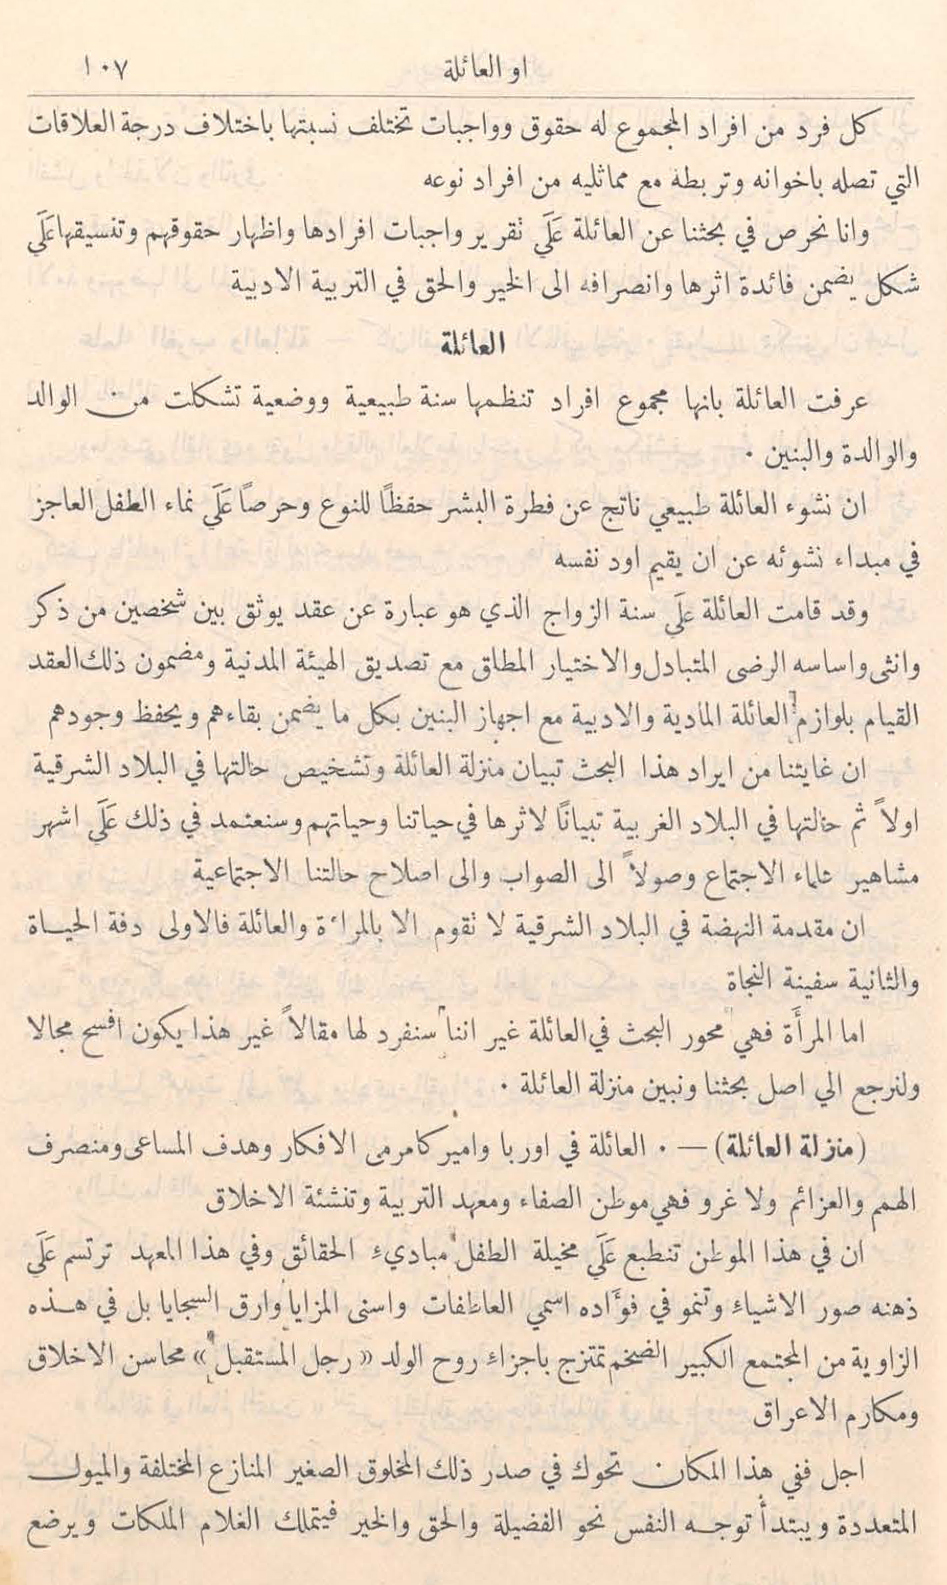 او العائلة ١٠٧
كل فرد من افراد المجموع له حقوق وواجبات تختلف نسبتها باختلاف درجة العلاقات
التي تصله باخوانه وتربطه مع مماثليه من افراد نوعه
وانا نحرص في بحثنا عن العائلة عَلَى تقرير واجبات افرادها واظهار حقوقهم وتنسيقها عَلَى
شكل يضمن فائدة اثرها وانصرافه الى الخير والحق في التربية الادبية
العائلة
عرفت العائلة بانها مجموع افراد تنظمها سنة طبيعية ووضعية تشكلت من الوالد
والوالدة والبنين ٠
ان نشوء العائلة طبيعي ناتج عن فطرة البشر حفظاً للنوع وحرصاً عَلَى نماء الطفل العاجز
في مبداء نشوئه عن ان يقيم اود نفسه
وقد قامت العائلة عَلَى سنة الزواج الذي هو عبارة عن عقد يوثق بين شخصين من ذكر
وانثى واساسه الرضى المتبادل والاختيار المطلق مع تصديق الهيئة المدنية ومضمون ذلك العقد
القيام بلوازم العائلة المادية والادبية مع اجهاز البنين بكل ما يضمن بقاءهم ويحفظ وجودهم
ان غايتنا من ايراد هذا البحث تبيان منزلة العائلة وتشخيص حالتها في البلاد الشرقية
اولاً ثم حالتها في البلاد الغربية تبيانًا لاثرها في حياتنا وحياتهم وسنعتمد في ذلك عَلَى اشهر
مشاهير علماء الاجتماع وصولاً الى الصواب والى اصلاح حالتنا الاجتماعية
ان مقدمة النهضة في البلاد الشرقية لا تقوم الا بالمراءة والعائلة فالاولى دفة الحياة
والثانية سفينة النجاة
اما المرأة فهي محور البحث في العائلة غير اننا سنفرد لها مقالاً غير هذا يكون افسح مجالا
ولنرجع الي اصل بحثنا ونبين منزلة العائلة ٠
(منزلة العائلة) — ٠ العائلة في اوربا واميركا مرمى الافكار وهدف المساعى ومنصرف
الهمم والعزائم ولا غرو فهي موطن الصفاء ومعهد التربية وتنشئة الاخلاق
ان في هذا الموطن تنطبع عَلَى مخيلة الطفل مباديء الحقائق وفي هذا المعهد ترتسم عَلَى
ذهنه صور الاشياء وتنمو في فوأده اسمي العاطفات واسنى المزايا وارق السجايا بل في هذه
الزاوية من المجتمع الكبير الضخم تمتزج باجزاء روح الولد « رجل المستقبل » محاسن الاخلاق
ومكارم الاعراق
اجل ففي هذا المكان تحوك في صدر ذلك المخلوق الصغير المنازع المختلفة والميول
المتعددة ويبتدأ توجه النفس نحو الفضيلة والحق والخير فيتملك الغلام الملكات ويرضع